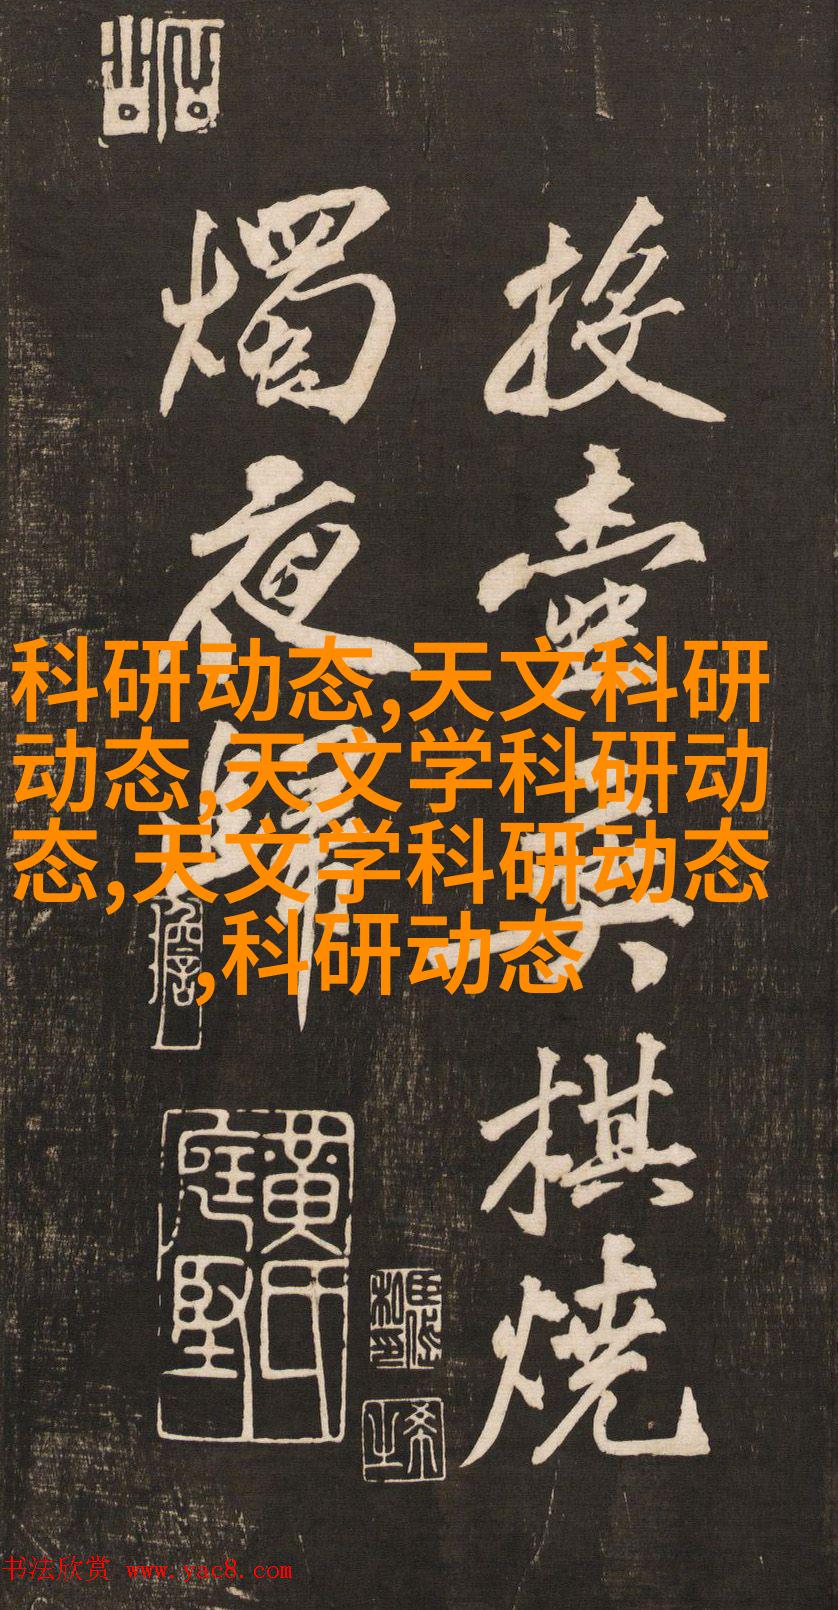 投壺棋燒
燭夜歸
科研动态,天文科研
动态,天文学科研动
态,天文学科研动态
,科研动态
黃氏
庭堅
书法欣赏 www.yac8.com